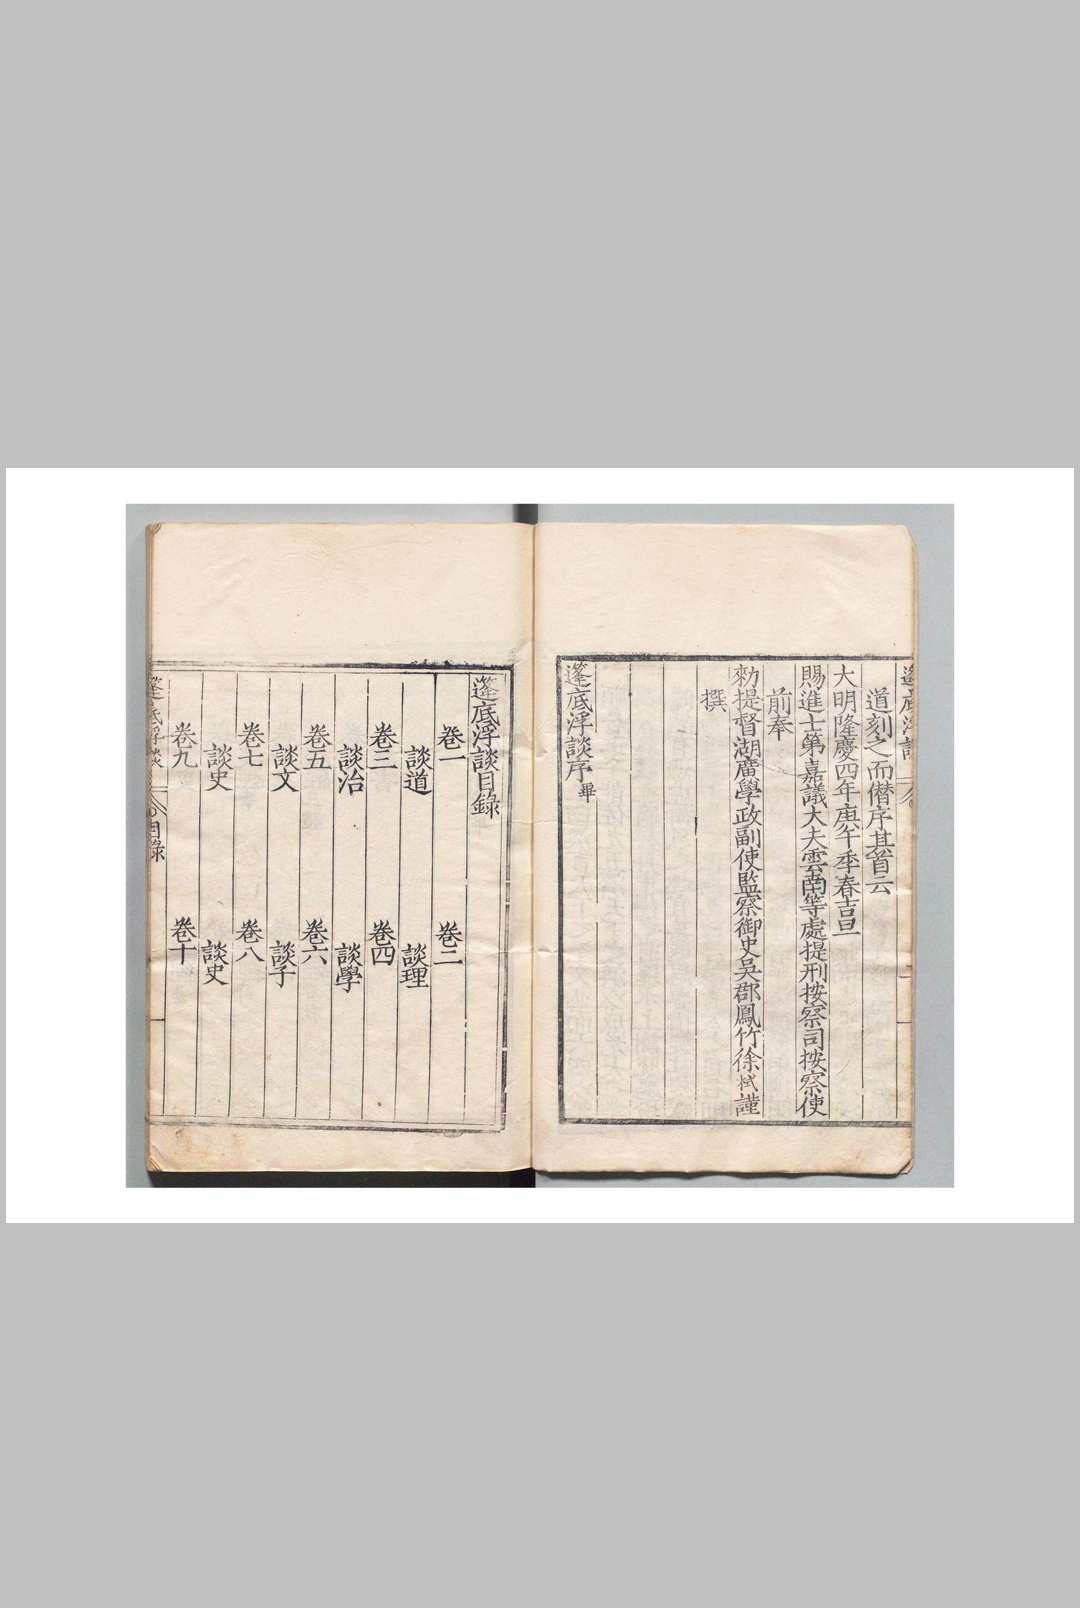 道刻之而僭序其首云
大明隆慶四年庚午季春吉旦
賜進士第嘉議大夫雲南等處提刑按察司按察使
前奉
勑提督湖廣學政副使監察御史吳郡鳳竹徐栻謹
撰
篷底浮談序畢
篷底浮談目錄
卷一 卷二
談道 談理
卷三 卷四
談治 談學
卷五 卷六
談文 談子
卷七 卷八
談史 談史
卷九 卷十
目錄